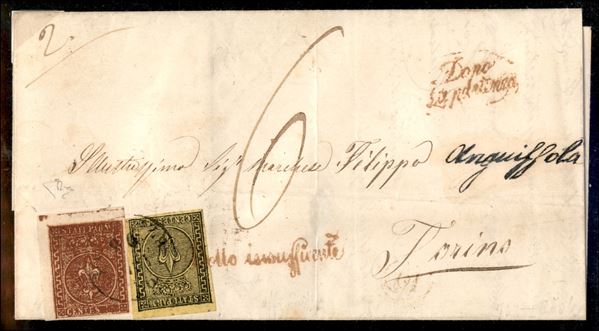 2.
6
Dopo
la partenza
Illustrissimo Sig.r Marchese Filippo Anguissola
Torino
Bollo insufficiente
STATI PARM
CENTES.
STATI PARM
CENTES.